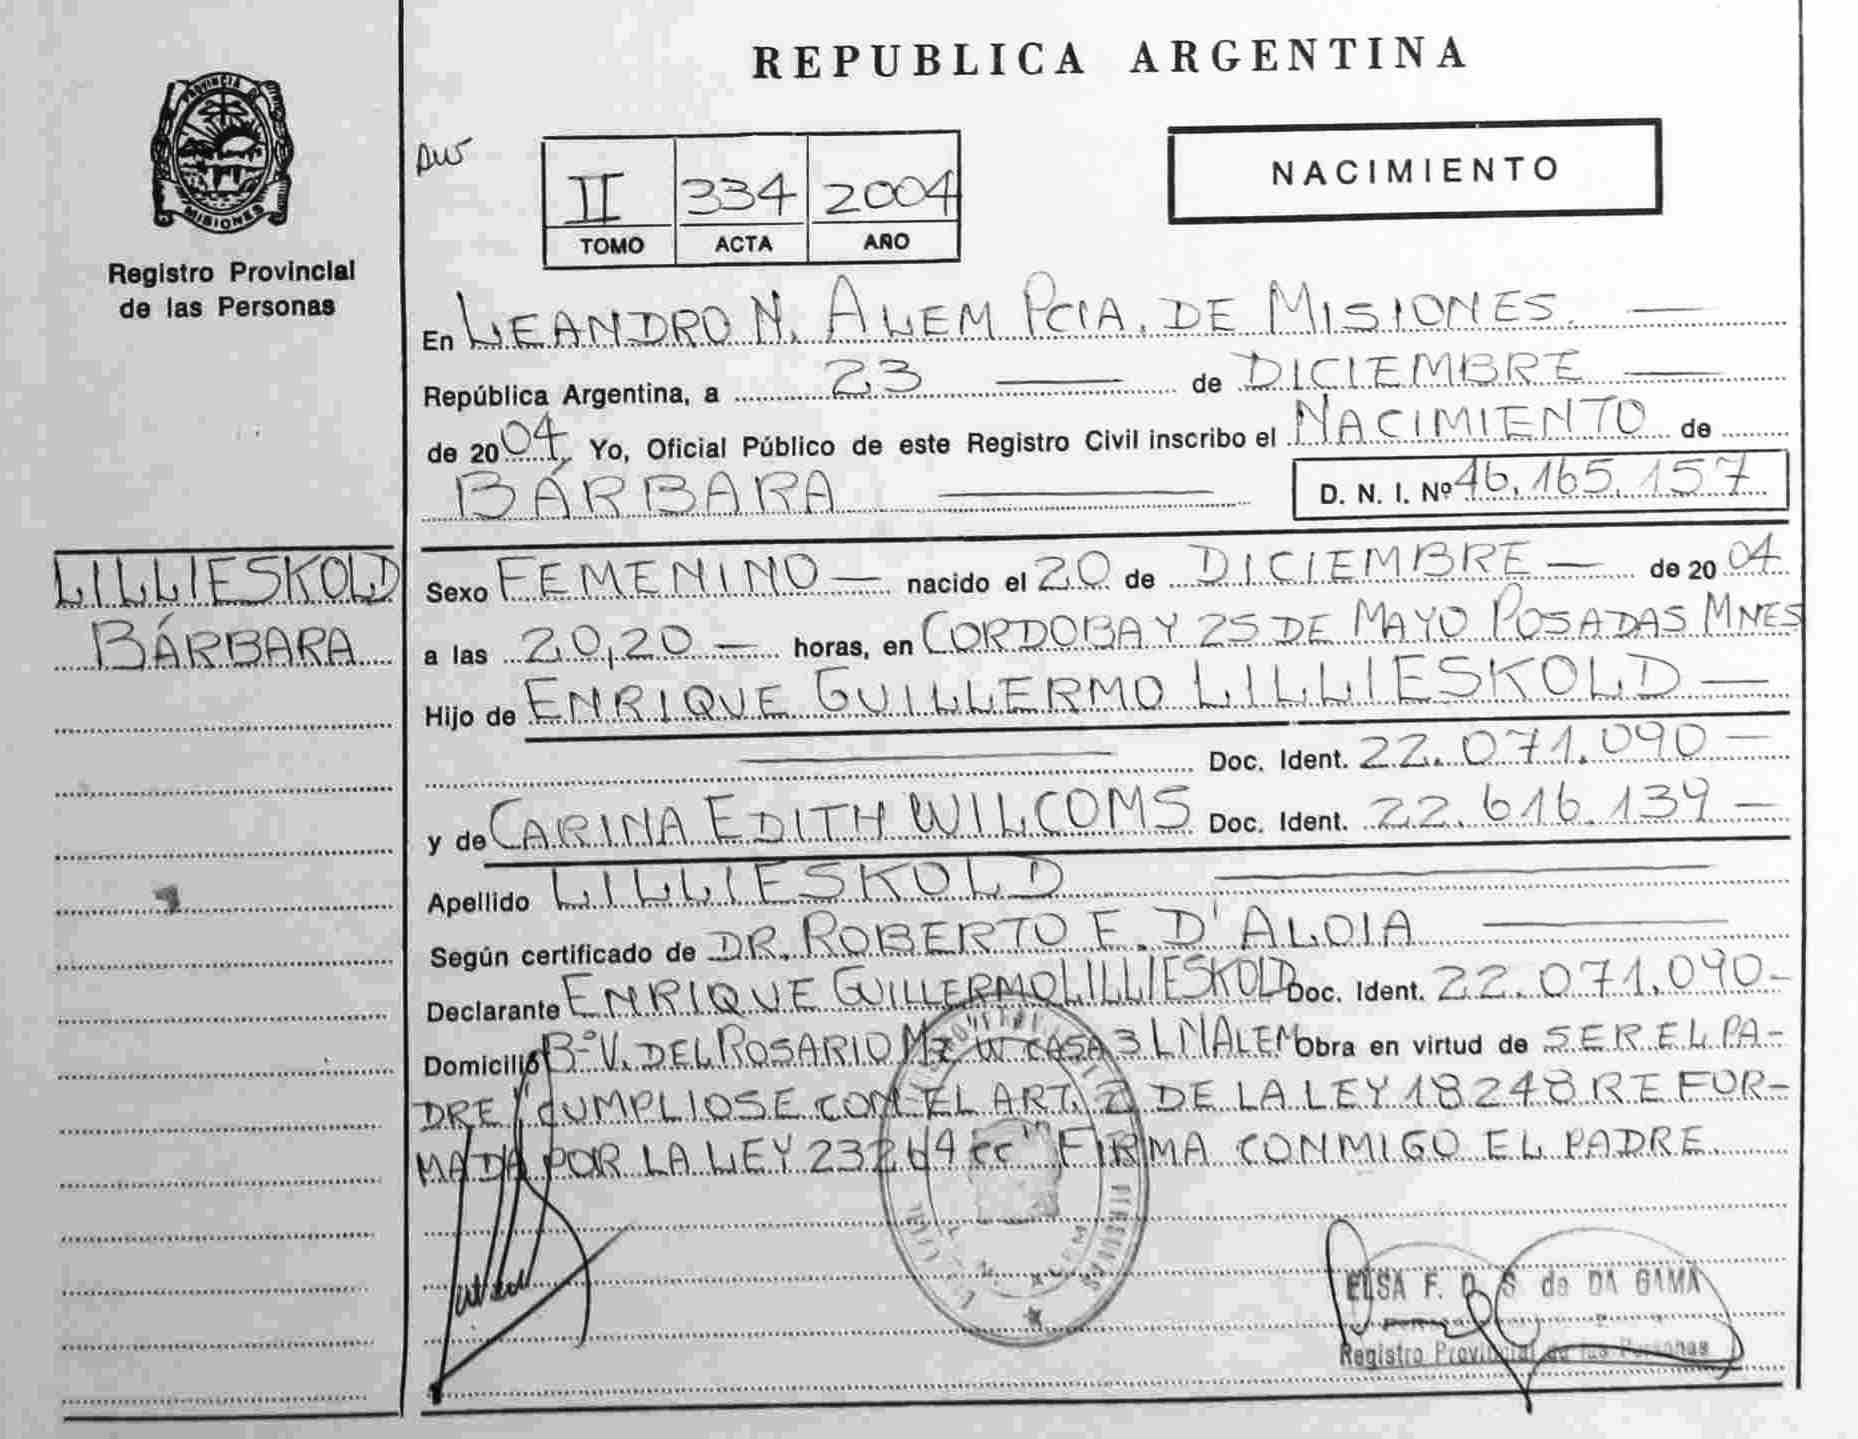 REPUBLICA ARGENTINA
PROVINCIA DE
MISIONES
Registro Provincial
de las Personas
NACIMIENTO
II 334 2004
TOMO ACTA AÑO
En LEANDRO N. ALEM PCIA. DE MISIONES.
República Argentina, a 23 de DICIEMBRE
de 2004. Yo, Oficial Público de este Registro Civil inscribo el NACIMIENTO de
BÁRBARA D. N. I. Nº 46.165.157
LILLIESKOLD
BÁRBARA
Sexo FEMENINO nacido el 20 de DICIEMBRE de 2004
a las 20,20 horas, en CORDOBA Y 25 DE MAYO POSADAS MNES
Hijo de ENRIQUE GUILLERMO LILLIESKOLD
Doc. Ident. 22.071.090
y de CARINA EDITH WILCOMS Doc. Ident. 22.616.139
Apellido LILLIESKOLD
Según certificado de DR. ROBERTO E. D'ALOIA
Declarante ENRIQUE GUILLERMO LILLIESKOLD Doc. Ident. 22.071.090
Domicilio Bº V. DEL ROSARIO CASA 3 L N ALEM Obra en virtud de SER EL PA-
DRE "CUMPLIOSE CON EL ART. 2 DE LA LEY 18248 REFOR-
MADA POR LA LEY 23264 cc" FIRMA CONMIGO EL PADRE.
ELSA F. D. S. de DA GAMA
Registro Provincial de las Personas